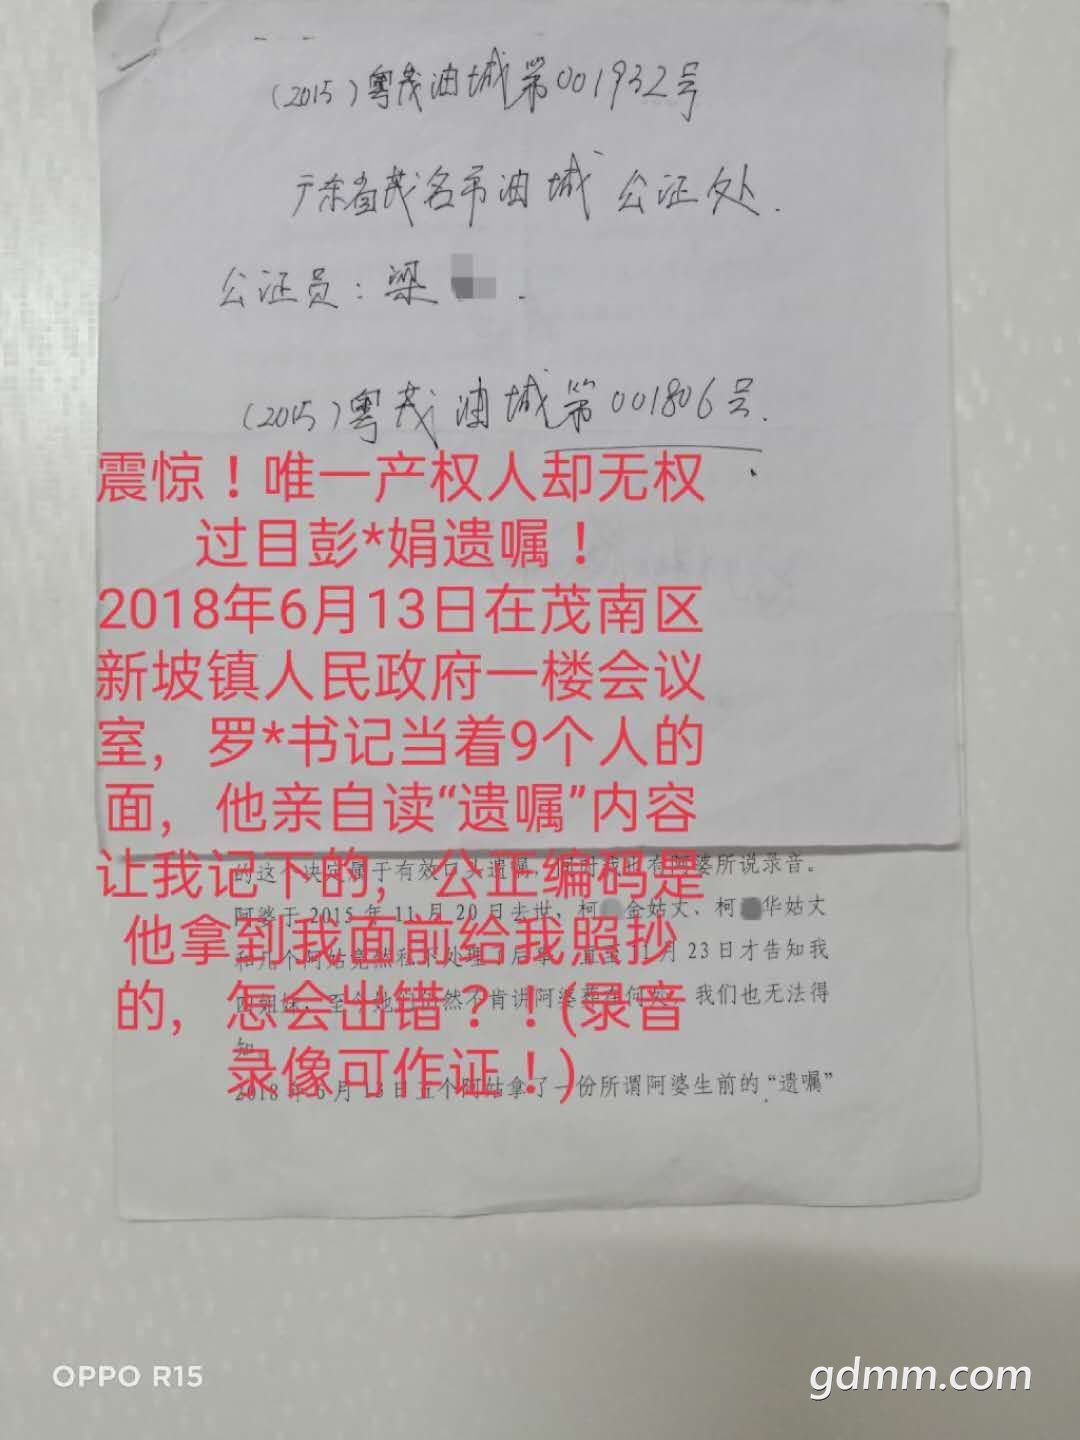 (2015)粤茂油城第001932号
广东省茂名市油城公证处.
公证员:梁
(2015)粤茂油城第001806号.
震惊！唯一产权人却无权
过目彭*娟遗嘱！
2018年6月13日在茂南区
新坡镇人民政府一楼会议
室，罗*书记当着9个人的
面，他亲自读“遗嘱”内容
让我记下的，公正编码是
他拿到我面前给我照抄
的，怎会出错？！(录音
录像可作证！)
的这个决定属于有效口头遗嘱，同时我也有阿婆所说录音。
阿婆于 2015 年 11 月 20 日去世，柯 金姑丈、柯 华姑丈
和几个阿姑竟然私下处理了后事，直至 11 月 23 日才告知我
然不肯讲阿婆葬在何处，我们也无法得
知。
2018 年 6 月 13 日五个阿姑拿了一份所谓阿婆生前的“遗嘱”
OPPO R15
gdmm.com